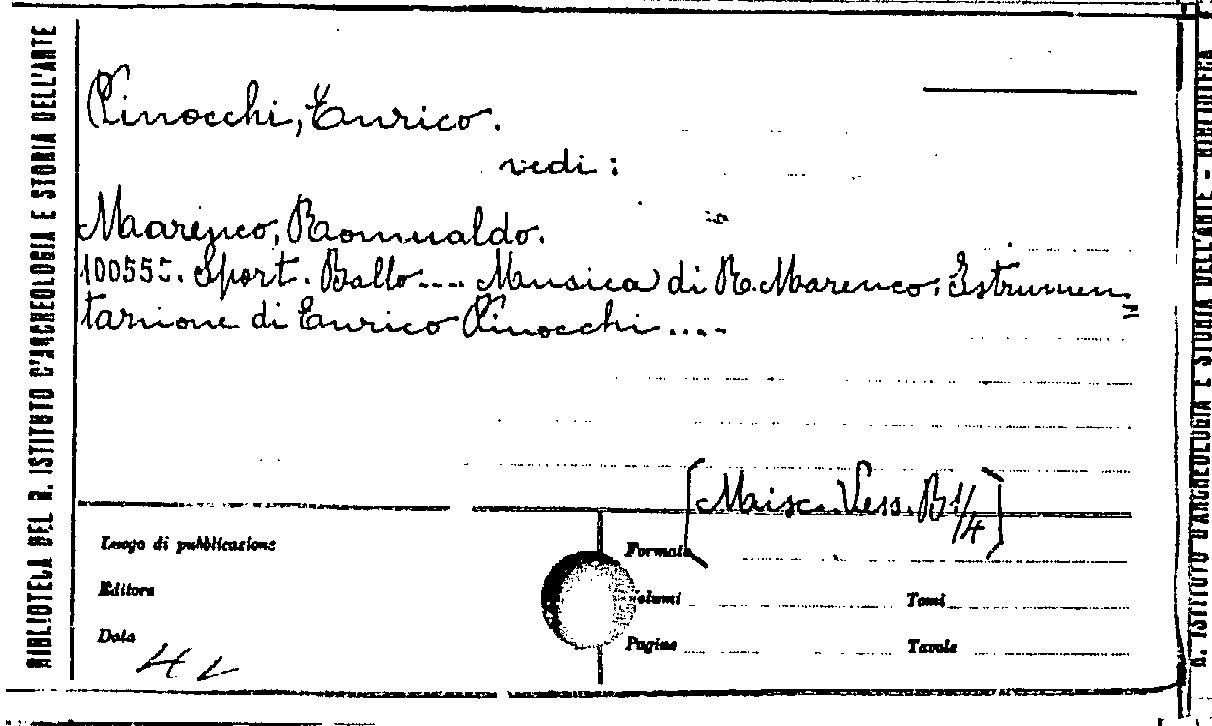 BIBLIOTECA DEL R. ISTITUTO D'ARCHEOLOGIA E STORIA DELL'ARTE
Pinocchi, Enrico.
vedi:
Marenco, Romualdo.
100555. Sport. Ballo.... Musica di R. Marenco. Istrumen-
tazione di Enrico Pinocchi....
[Misc. Vess. B 1/4]
Luogo di pubblicazione
Editore
Data
Formato
Volumi
Tomi
Pagine
Tavole
R. ISTITUTO D'ARCHEOLOGIA E STORIA DELL'ARTE - BIBLIOTECA